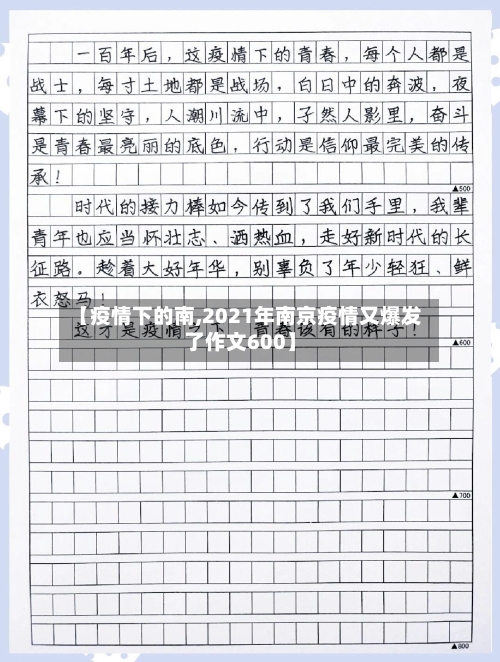 一百年后，这疫情下的青春，每个人都是
战士，每寸土地都是战场，白日中的奔波，夜
幕下的坚守，人潮川流中，孑然人影里，奋斗
是青春最亮丽的底色，行动是信仰最完美的传
承！
▲500
时代的接力棒如今传到了我们手里，我辈
青年也应当怀壮志、洒热血，走好新时代的长
征路。趁着大好年华，别辜负了年少轻狂、鲜
衣怒马！
【疫情下的南,2021年南京疫情又爆发
了作文600】
这才是疫情之下，青春该有的样子！
▲600
▲700
▲800